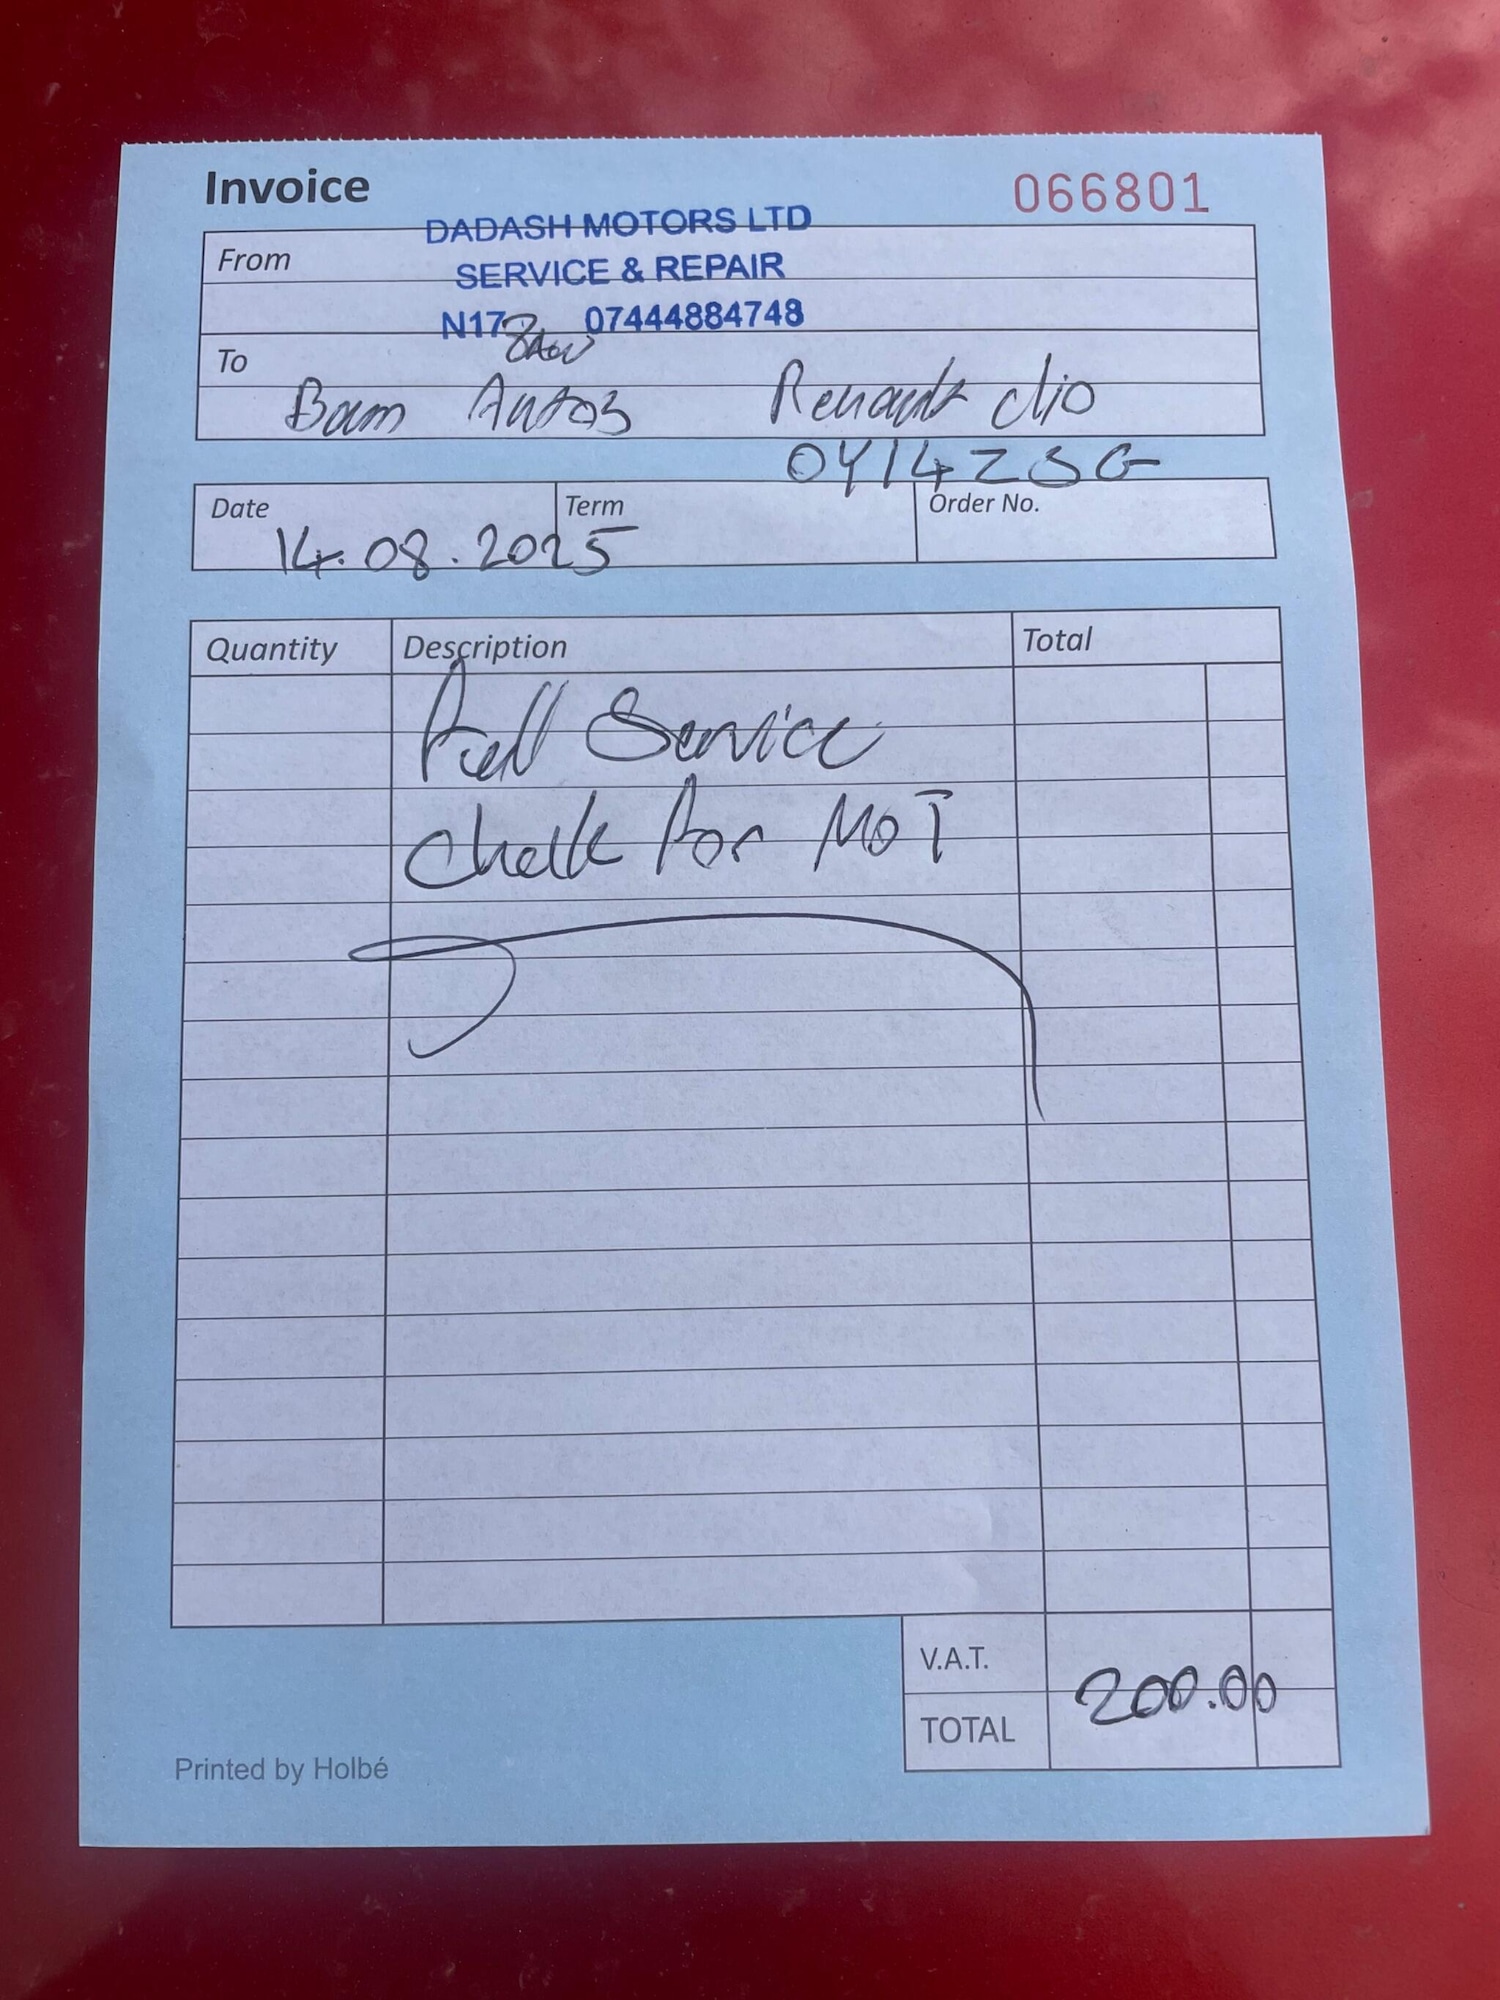 Invoice 066801
DADASH MOTORS LTD
From
SERVICE & REPAIR
N17 07444884748
To
Bam Autos Renault clio
OY14ZSG
Date Term Order No.
14.08.2025
Quantity Description Total
Full Service
Check For MOT
V.A.T.
200.00
TOTAL
Printed by Holbé